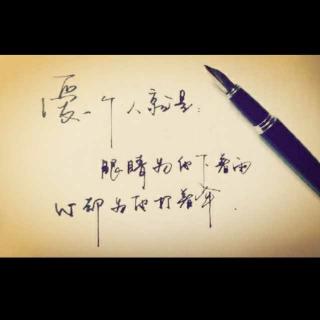 愛一个人就是:
眼睛为他下着雨
心却为他打着伞.